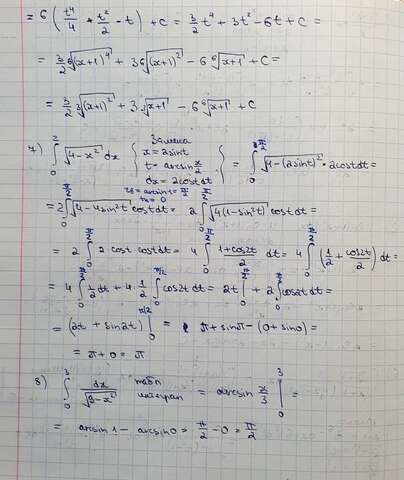 = 6 (t⁴/4 + t²/2 - t) + c = 3/2 t⁴ + 3t² - 6t + C =
= 3/2 ⁶√(x+1)⁴ + 3 ⁶√(x+1)² - 6 ⁶√x+1 + C =
= 3/2 ³√(x+1)² + 3 ³√x+1 - 6 ⁶√x+1 + C
7) ∫₀² √4-x² dx { Замена x = 2sint t = arcsin x/2 dx = 2costdt } = ∫₀^(π/2) √4-(2sint)² · 2costdt =
tв = arcsin 1 = π/2
tн = 0
= 2 ∫₀^(π/2) √4-4sin²t costdt = 2 ∫₀^(π/2) √4(1-sin²t) costdt =
= 2 ∫₀^(π/2) 2 cost costdt = 4 ∫₀^(π/2) 1+cos2t/2 dt = 4 ∫₀^(π/2) (1/2 + cos2t/2) dt =
= 4 ∫₀^(π/2) 1/2 dt + 4 · 1/2 ∫₀^(π/2) cos2t dt = 2t |₀^(π/2) + 2 ∫₀^(π/2) cos2t dt =
= (2t + sin2t) |₀^(π/2) = π + sinπ - (0 + sin0) =
= π + 0 = π
8) ∫₀³ dx/√9-x² табл интеграл = arcsin x/3 |₀³ =
= arcsin 1 - arcsin 0 = π/2 - 0 = π/2